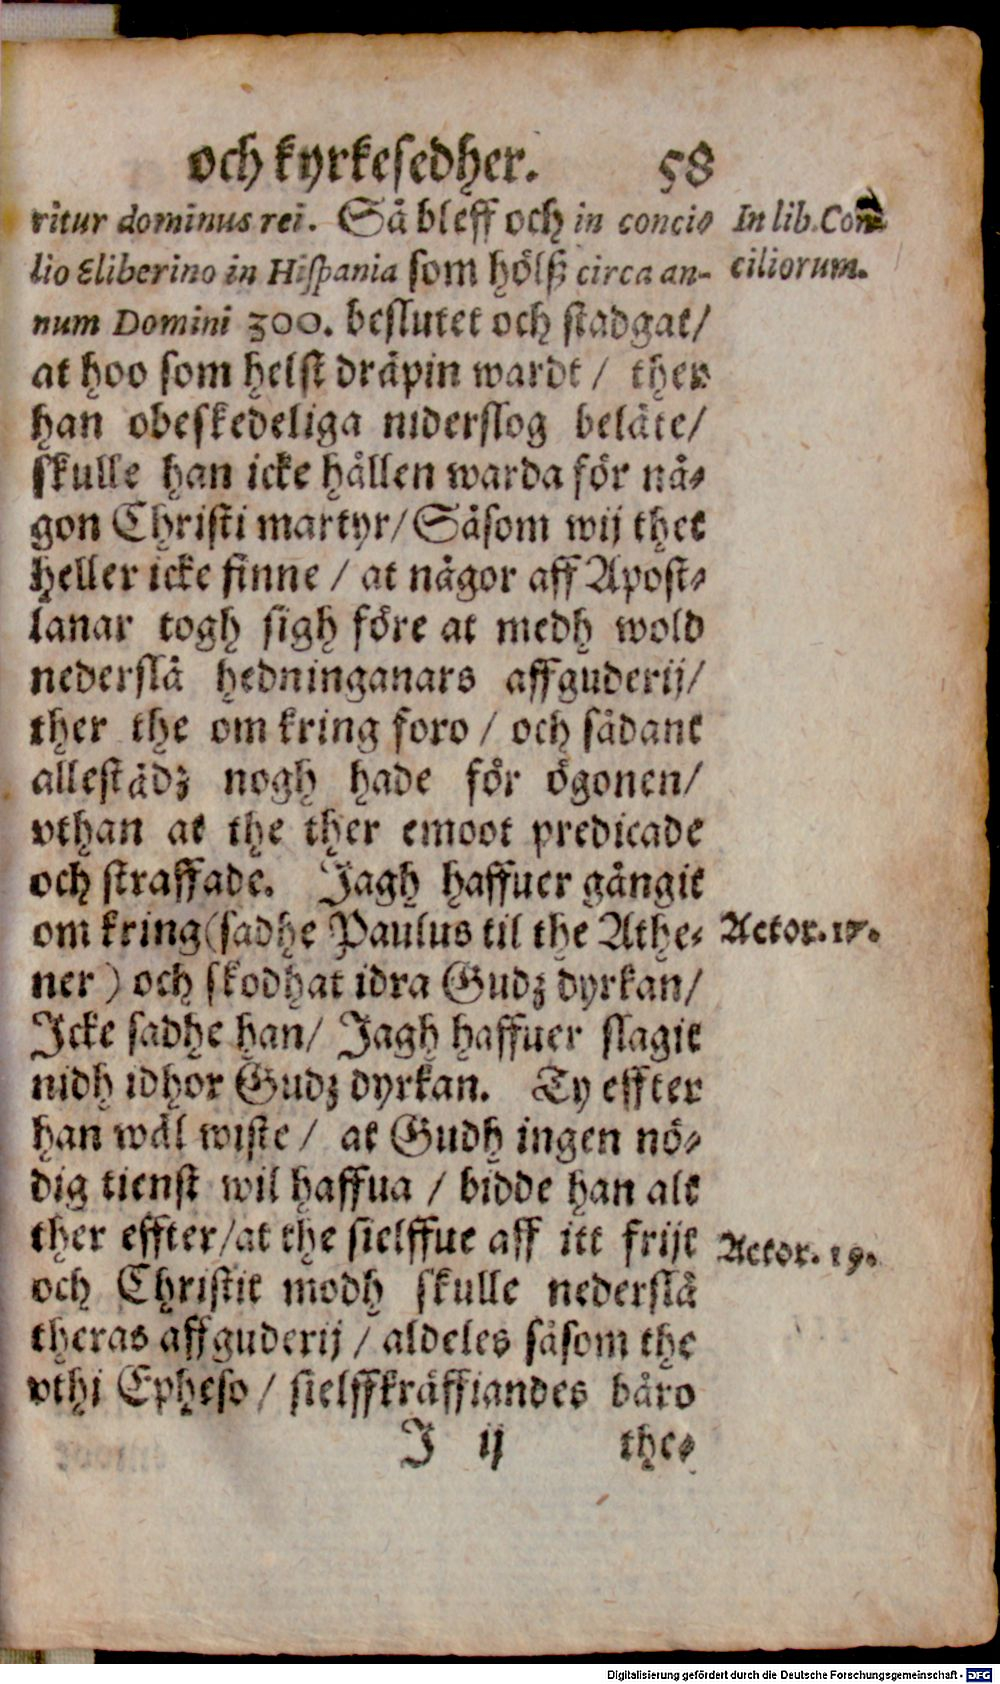 och kyrkesedher. 58
ritur dominus rei. Så bleff och in concis In lib. Con-
lio Eliberino in Hispania som hölß circa an- ciliorum.
num Domini 300. beslutet och stadgat/
at hoo som helst dräpin wardt / ther
han obeskedeliga niderslog beläte/
skulle han icke hållen warda för nå-
gon Christi martyr/ Såsom wij thet
heller icke finne / at någor aff Apost-
lanar togh sigh före at medh wold
nederslå hedninganars affguderij/
ther the om kring foro / och sådant
allestädz nogh hade för ögonen/
vthan at the ther emoot predicade
och straffade. Jagh haffuer gångit
om kring (sadhe Paulus til the Athe- Actor. 17.
ner ) och skodhat idra Gudz dyrkan/
Icke sadhe han/ Jagh haffuer slagit
nidh idhor Gudz dyrkan. Ty effter
han wäl wiste / at Gudh ingen nö-
dig tienst wil haffua / bidde han alt
ther effter/at the sielffue aff itt frijt Actor. 19.
och Christit modh skulle nederslå
theras affguderij / aldeles såsom the
vthi Epheso / sielffkräffiandes båro
J ij the-
Digitalisierung gefördert durch die Deutsche Forschungsgemeinschaft - DFG